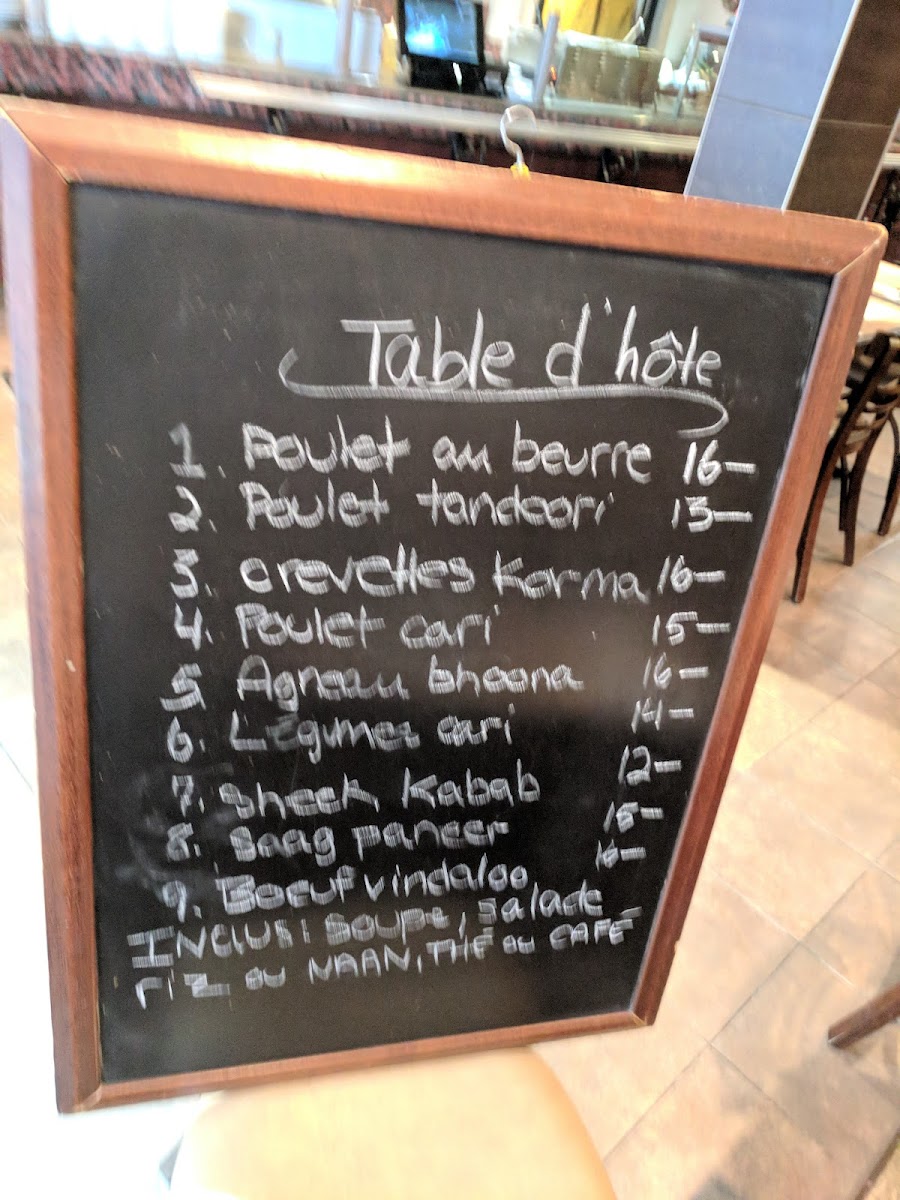 Table d'hôte
1. Poulet au beurre 16—
2. Poulet tandoori 13—
3. crevettes Korma 16—
4. Poulet cari 15—
5. Agneau bhoona 16—
6. Légumes cari 14—
7. Sheek Kabab 12—
8. Saag paneer 15—
9. Boeuf vindaloo 16—
INclusi soupe, salade
riz ou NAAN, THÉ ou CAFÉ